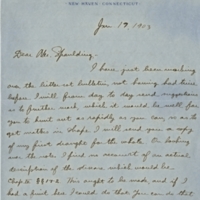 NEW HAVEN, CONNECTICUT
Jan 17 1903
Dear Mr. Spaulding:
I have just been working
over the collected bulletin, not having had time
before. I will from day to day send suggestions
as to further work, which it would be well for
you to hunt out as rapidly as you can, so as to
get matters in shape. I will send you a copy
of my first draught for the whole. On looking
over the note I find no account of an actual
description of the dress which would be
Chapter
This ought to be made, and if I
had a print here I would do that. You can do that